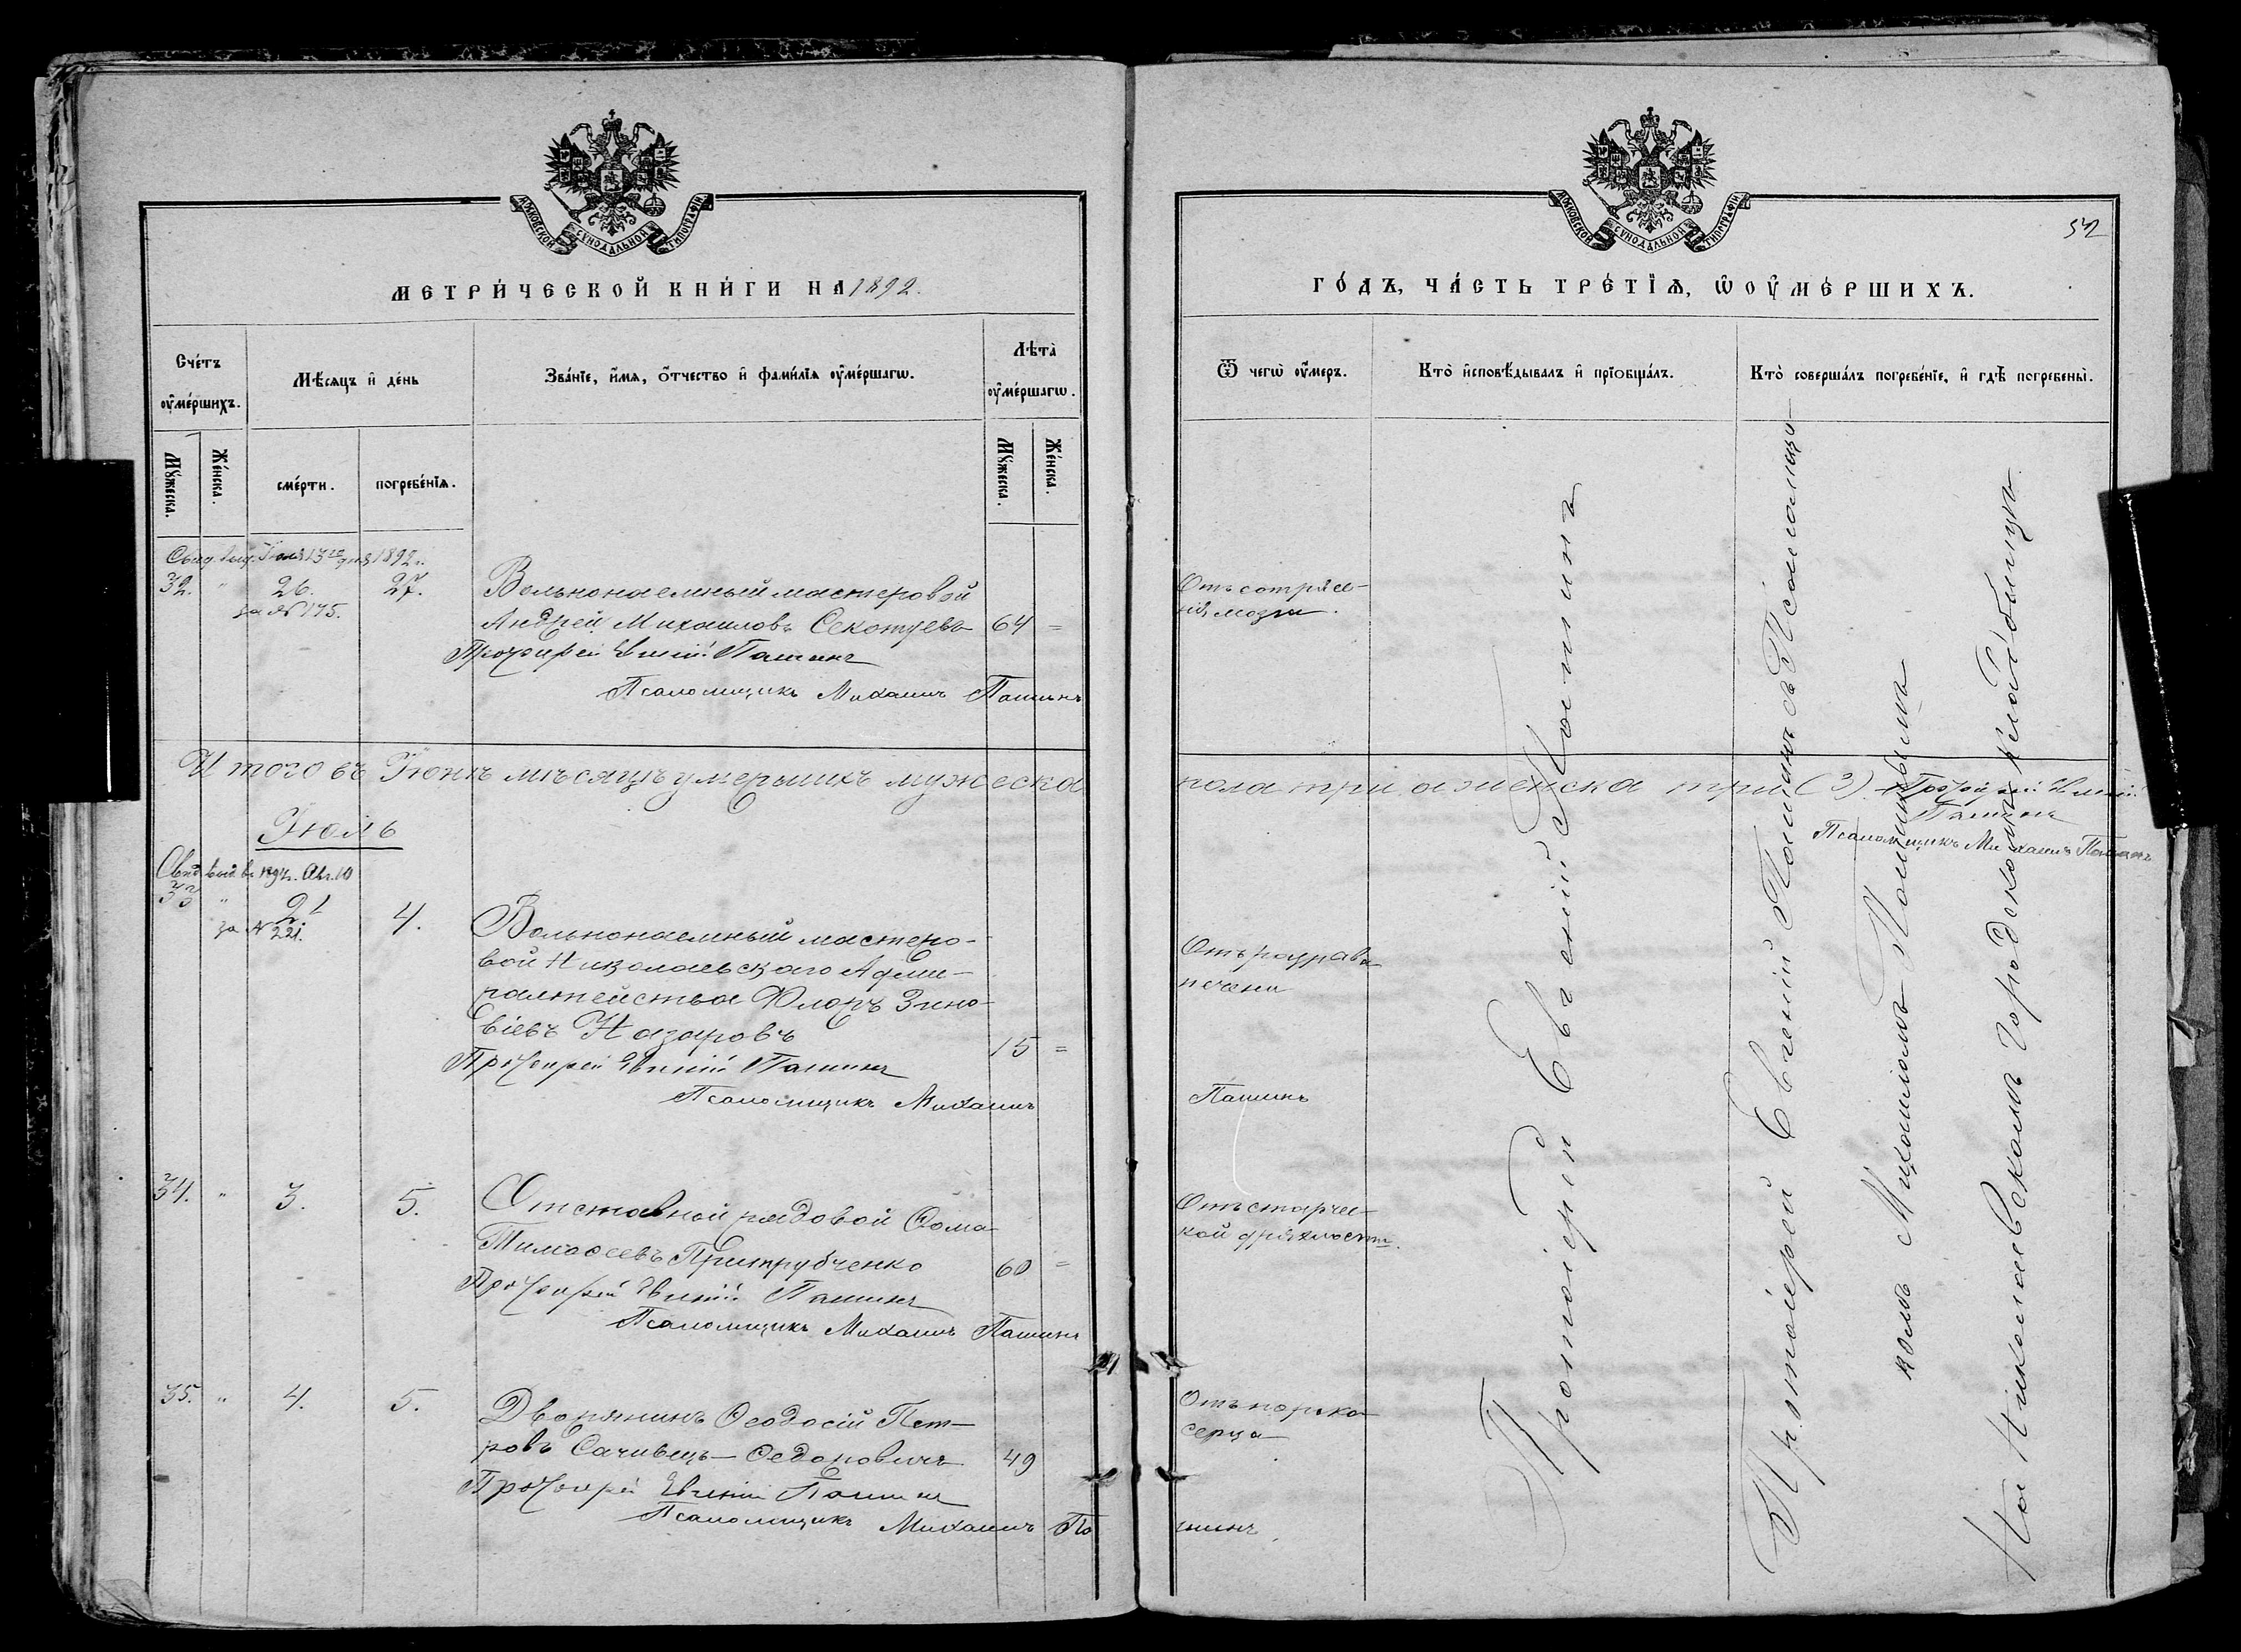 МОСКОВСКОЙ СУНОДАЛЬНОЙ ТИПОГРАФІИ
МЕТРИ́ЧЕСКОЙ КНИ́ГИ НА 1892.
Сче́тъ ᲂу҆ме́ршихъ.
Мѣ́сѧцъ и҆ де́нь
Зва́нїе, и҆́мѧ, ѻ҆́тчество и҆ фами́лїѧ ᲂу҆ме́ршагѡ.
Лѣта̀ ᲂу҆ме́ршагѡ.
Мꙋ́жеска.
Же́нска.
сме́рти.
погребе́нїѧ.
Мꙋ́жеска.
Же́нска.
Свид. выд. Іюля 13го дня 1892 г.
32. " 26. 27. Вольнонаемный мастеровой
за № 175.
Андрей Михаиловъ 64 =
Протоіерей Евгеній Пашинъ
Псаломщикъ Михаилъ Пашинъ
Итого въ Іюнѣ мѣсяцѣ умершихъ мужеска
Іюль
Свид. выд. Авг. 10
33 " 2 4. Вольнонаемный мастеро-
за № 221.
вой Николаевскаго Адми-
ралтейства Флоръ Зино-
віевъ Назаровъ 15 =
Протоіерей Евгеній Пашинъ
Псаломщикъ Михаилъ
34. " 3. 5. Отставной рядовой Ѳома
Тимоѳеевъ Притрубченко 60 =
Протоіерей Евгеній Пашинъ
Псаломщикъ Михаилъ Пашинъ
35. " 4. 5. Дворянинъ Ѳеодосій Пет-
ровъ Сачивецъ-Ѳедоровичъ 49
Протоіерей Евгеній Пашинъ
Псаломщикъ Михаилъ Па
МОСКОВСКОЙ СУНОДАЛЬНОЙ ТИПОГРАФІИ
ГО́ДЪ, ЧА́СТЬ ТРЕ́ТЇѦ, Ѡ ОУ҆МЕ́РШИХЪ.
Ѿ чегѡ̀ ᲂу҆́меръ.
Кто̀ и҆сповѣ́дывалъ и҆ прїобща́лъ.
Кто̀ соверша́лъ погребе́нїе, и҆ гдѣ̀ погребены̀.
Отъ сотрясе-
нія мозга.
пола три а женска три (3). Протоіерей Евгеній
Пашинъ
Псаломщикъ Михаилъ Пашинъ
печени
Пашинъ
Отъ старчес-
кой дряхлости.
Отъ порока
серца
шинъ
Протоіерей Евгеній Пашинъ
Протоіерей Евгеній Пашинъ съ Псаломщи-
комъ Михаиломъ Пашинымъ
На Николаевскомъ Городскомъ кладбищѣ.